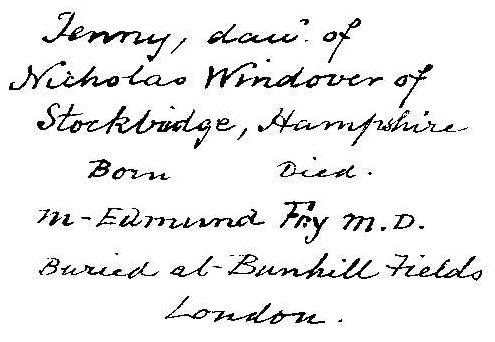 Jenny, daur. of
Nicholas Windover of
Stockbridge, Hampshire
Born Died.
m - Edmund Fry M.D.
Buried at Bunhill Fields
London.